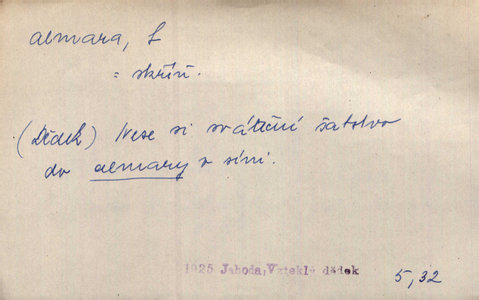 almara, f
= skříň.
(Dědek) Nese si sváteční šatstvo
do almary v síni.
1925 Jahoda, Vzteklý dědek
5,32